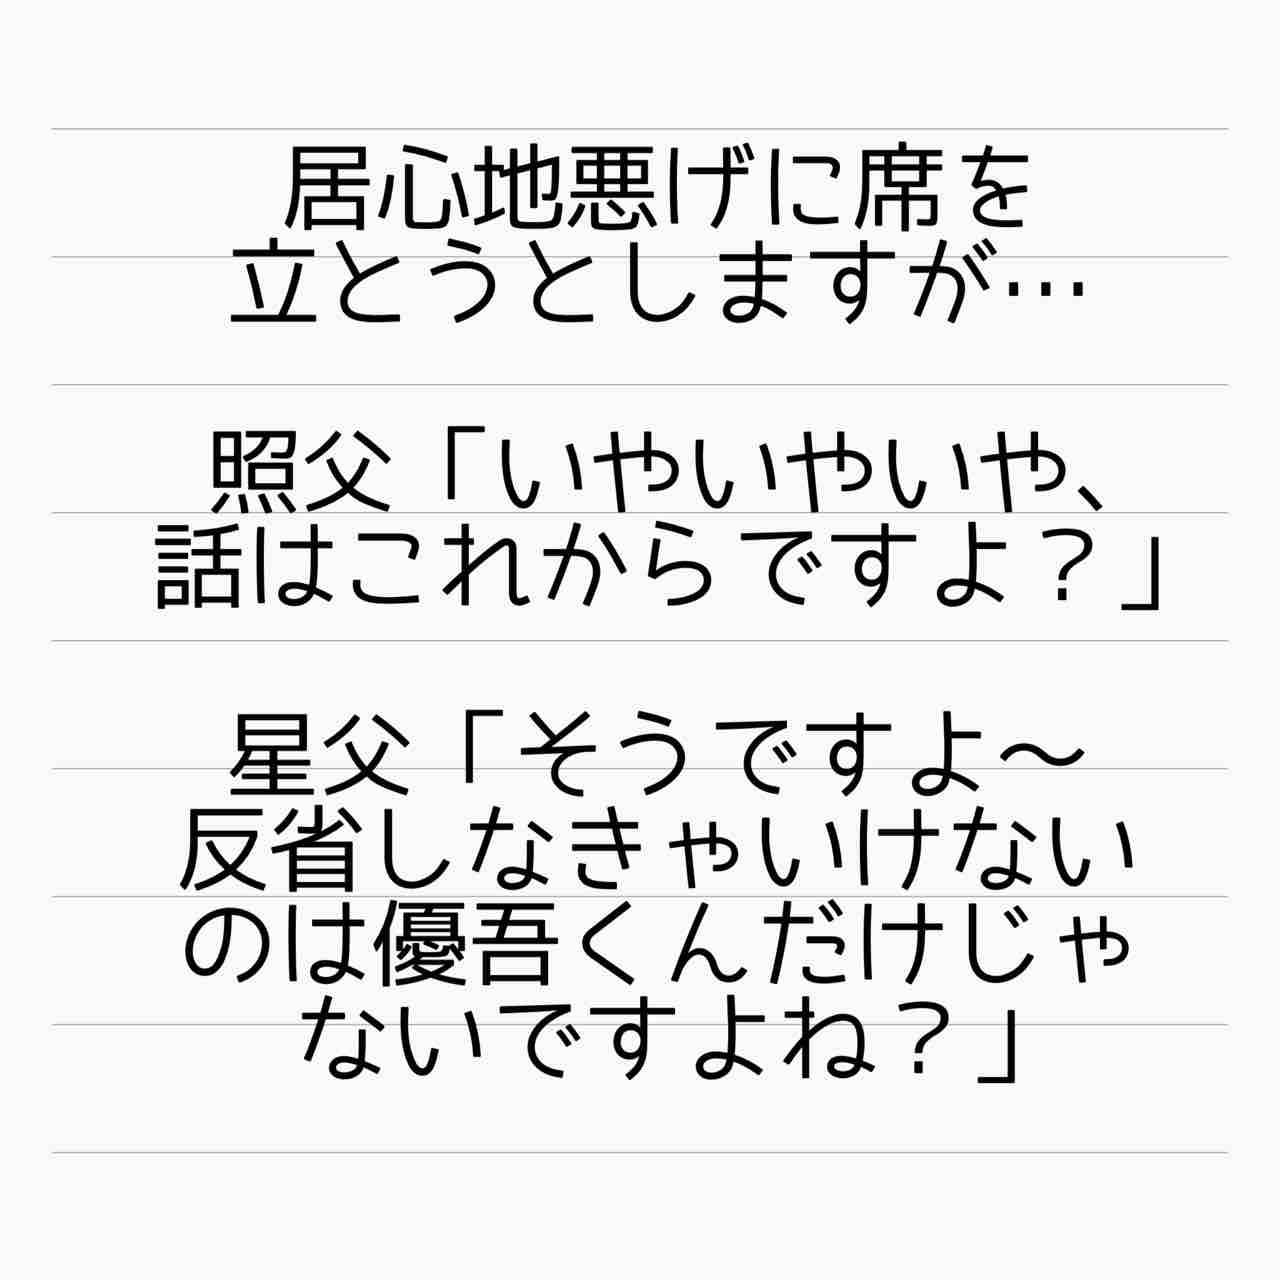 居心地悪げに席を
立とうとしますが…
照父「いやいやいや、
話はこれからですよ？」
星父「そうですよ〜
反省しなきゃいけない
のは優吾くんだけじゃ
ないですよね？」